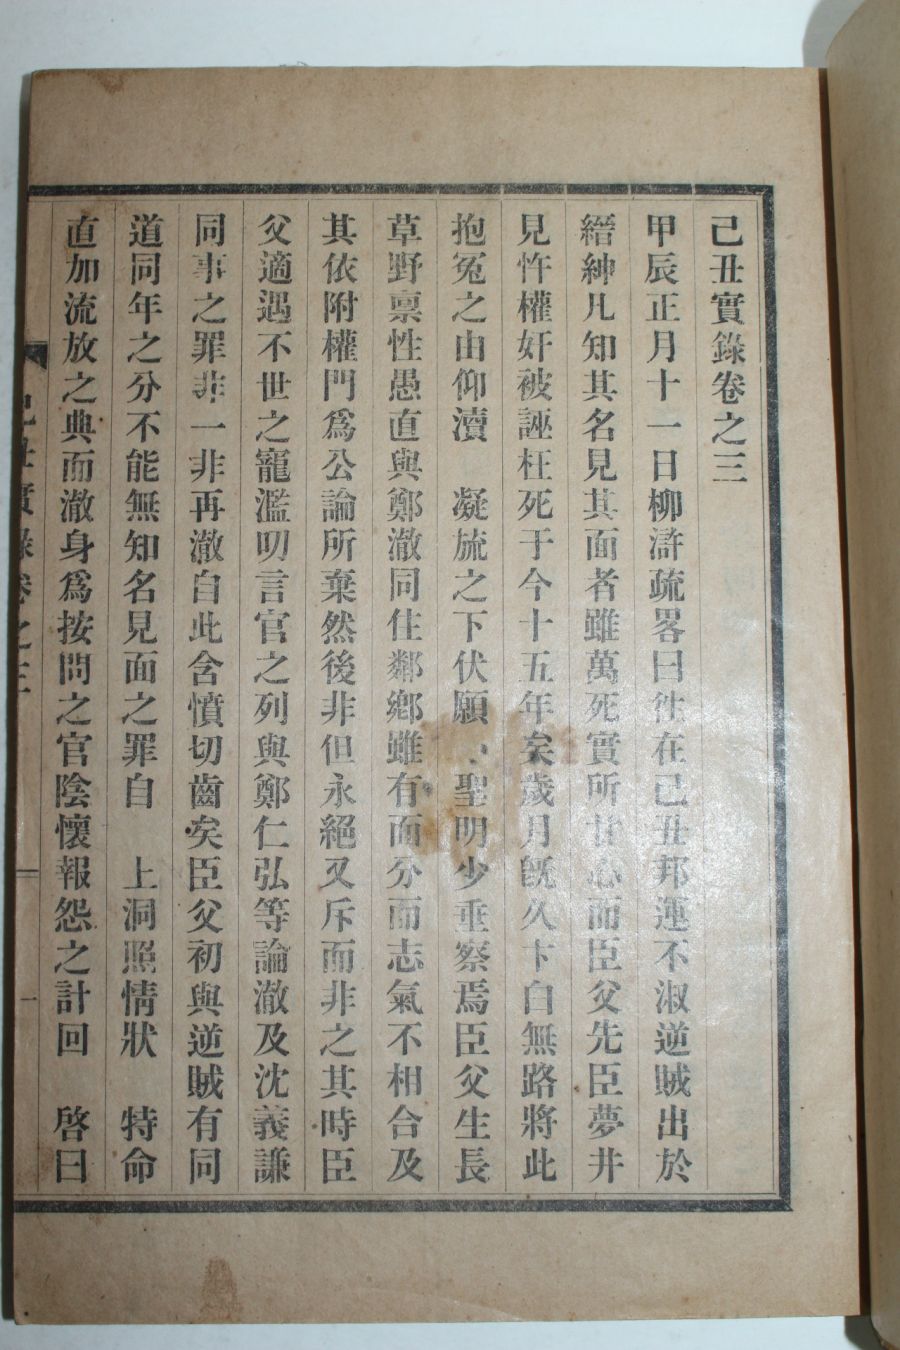 己丑實錄卷之三
甲辰正月十一日柳滸疏畧曰徃在己丑邦運不淑逆賊出於
縉紳凡知其名見其面者雖萬死實所甘心而臣父先臣夢井
見忤權奸被誣枉死于今十五年矣歲月旣久卞白無路將此
抱冤之由仰瀆　凝旒之下伏願　聖明少垂察焉臣父生長
草野禀性愚直與鄭澈同住鄰鄕雖有面分而志氣不相合及
其依附權門爲公論所棄然後非但永絕又斥而非之其時臣
父適遇不世之寵濫叨言官之列與鄭仁弘等論澈及沈義謙
同事之罪非一非再澈自此含憤切齒矣臣父初與逆賊有同
道同年之分不能無知名見面之罪自　上洞照情狀　特命
直加流放之典而澈身爲按問之官陰懷報怨之計回　啓曰
己丑實錄卷之三
一